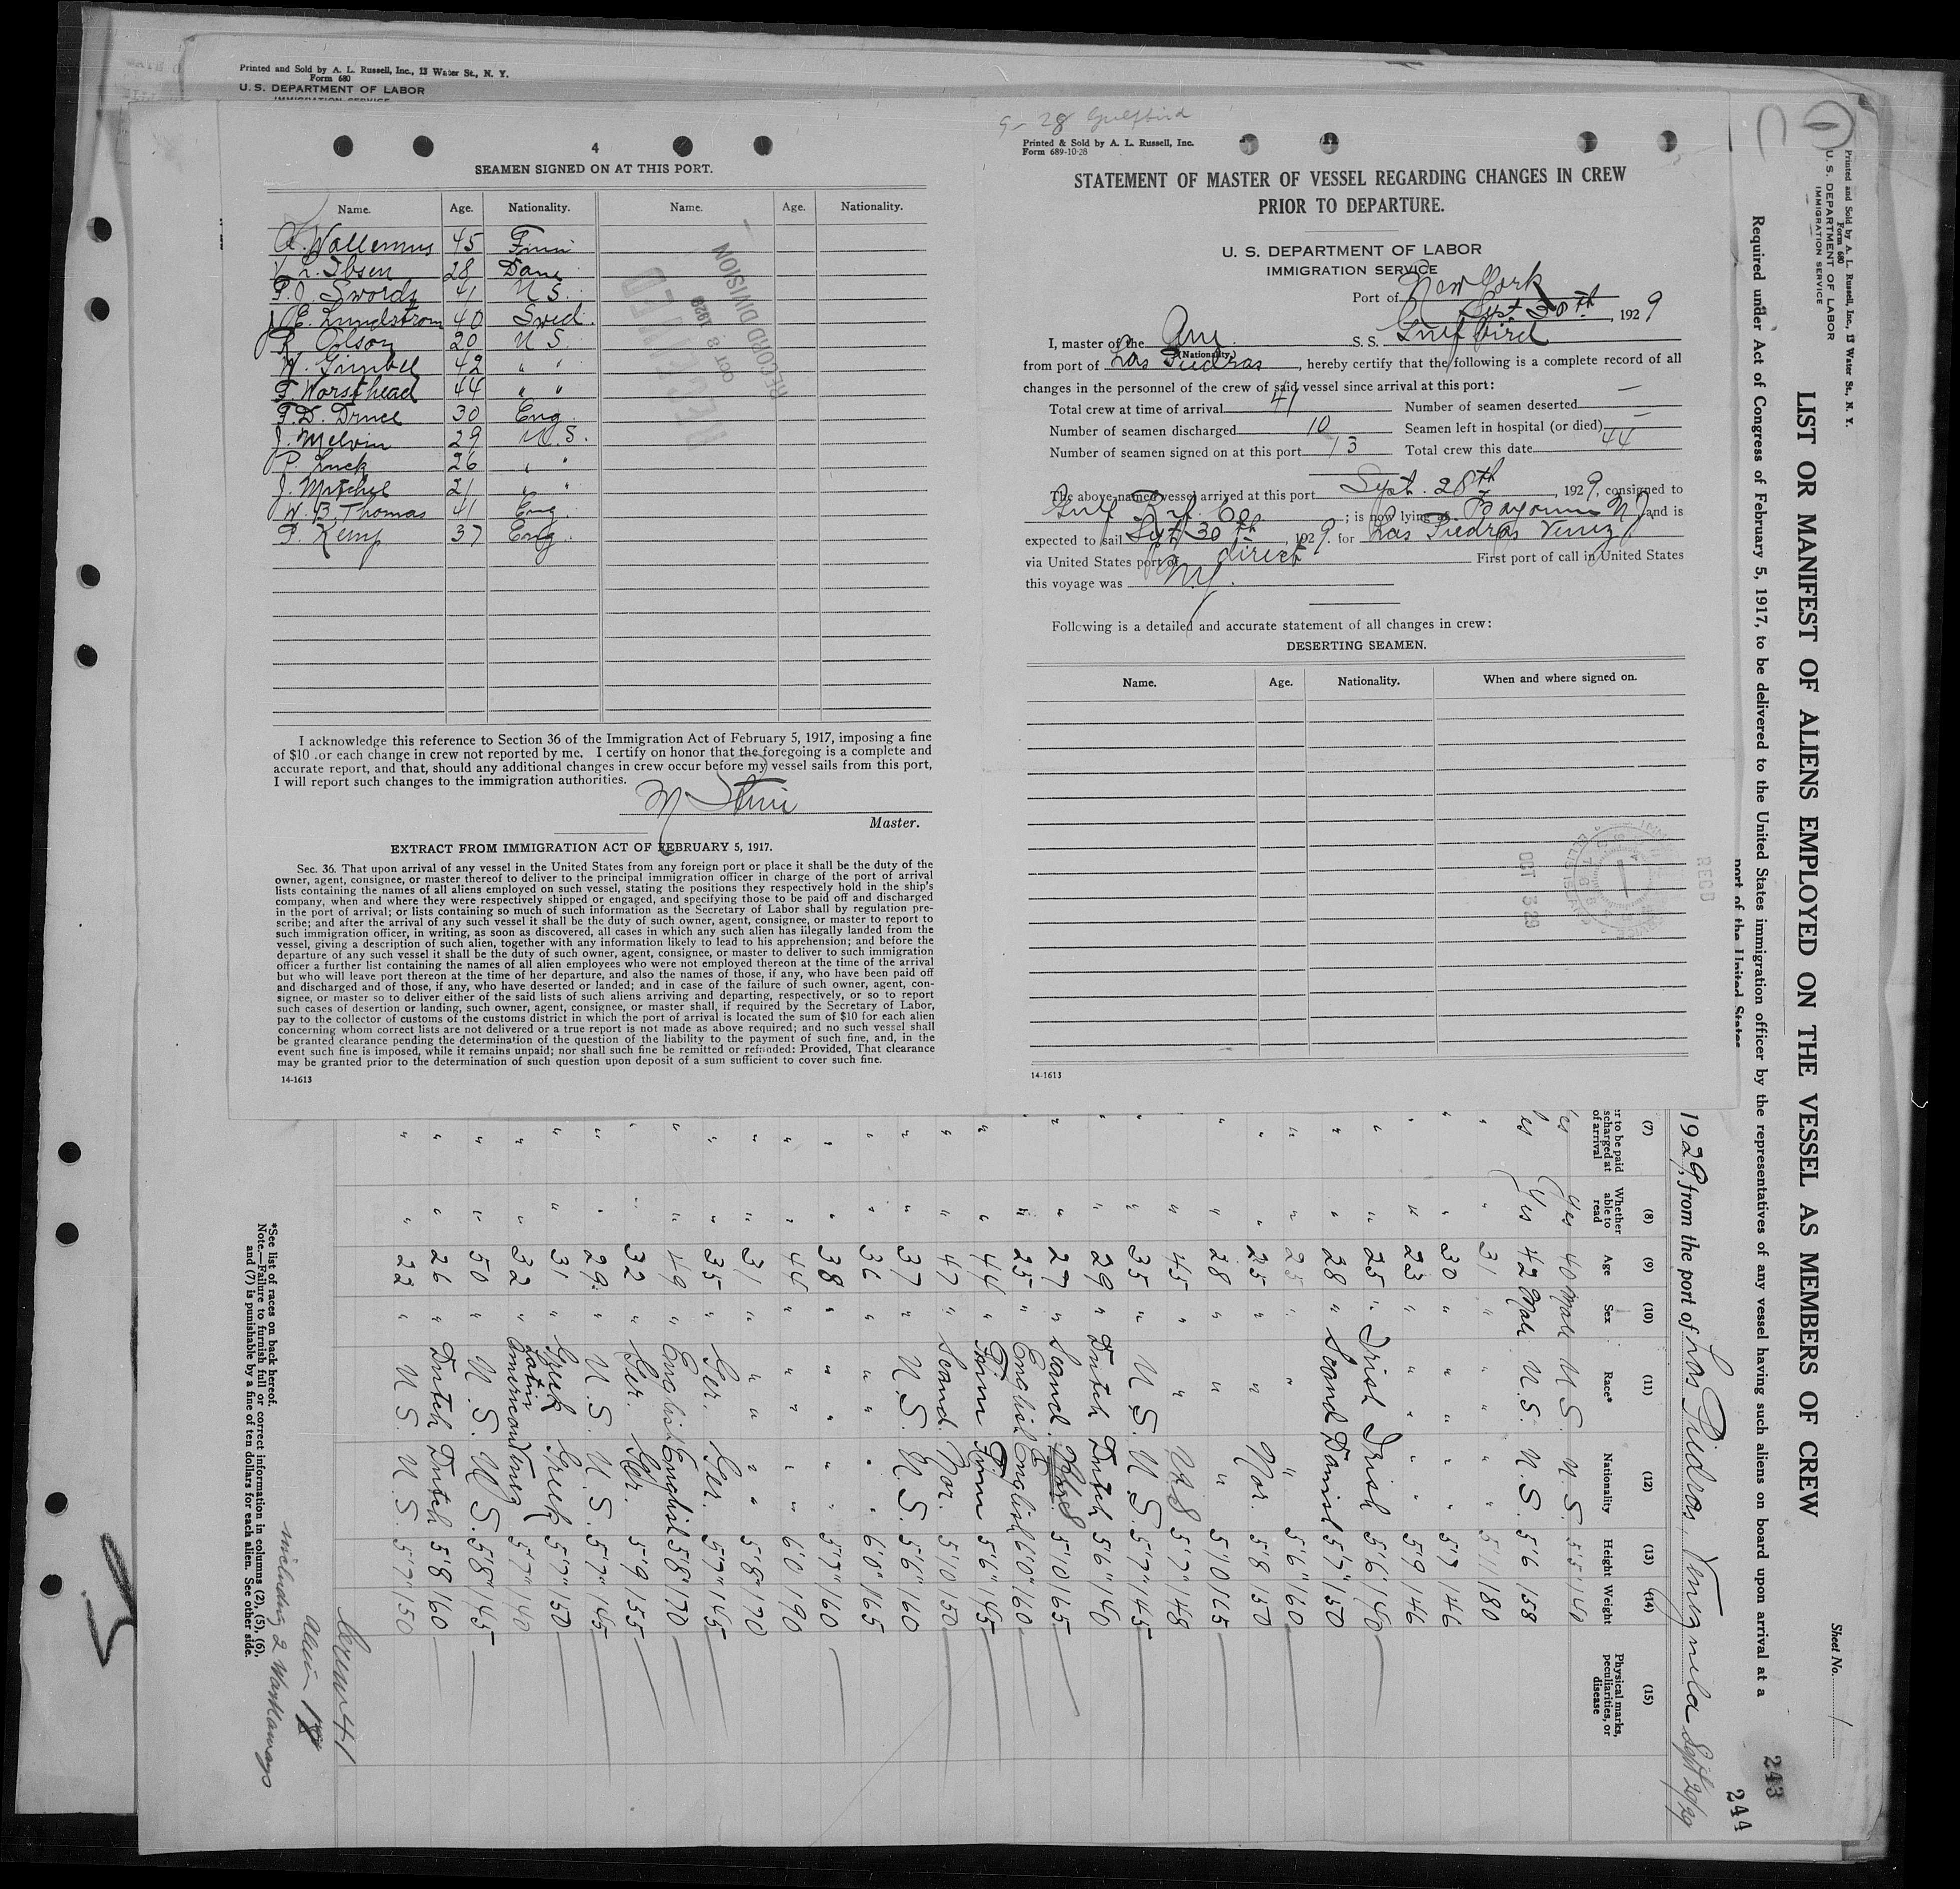 Printed and Sold by A. L. Russell, Inc., 13 Water St., N. Y.
Form 680
U. S. DEPARTMENT OF LABOR
IMMIGRATION SERVICE
4
SEAMEN SIGNED ON AT THIS PORT.
Name. Age. Nationality. Name. Age. Nationality.
45 Finn
L. Ibsen 28 Dane
P. J. Swords 41 U S.
E. Lundstrom 40 Swed.
R Colson 20 U S
W. Gimbel 42 " "
F. Worsthead 44 " "
F. D. Druce 30 Eng
J. Melvin 29 U. S.
P. Luck 26 " "
J. Mitchel 21 " "
W. B. Thomas 41 Eng.
P. Kemp 37 Eng.
RECEIVED
OCT 3 1929
RECORD DIVISION
I acknowledge this reference to Section 36 of the Immigration Act of February 5, 1917, imposing a fine
of $10 for each change in crew not reported by me. I certify on honor that the foregoing is a complete and
accurate report, and that, should any additional changes in crew occur before my vessel sails from this port,
I will report such changes to the immigration authorities.
Master.
EXTRACT FROM IMMIGRATION ACT OF FEBRUARY 5, 1917.
Sec. 36. That upon arrival of any vessel in the United States from any foreign port or place it shall be the duty of the
owner, agent, consignee, or master thereof to deliver to the principal immigration officer in charge of the port of arrival
lists containing the names of all aliens employed on such vessel, stating the positions they respectively hold in the ship's
company, when and where they were respectively shipped or engaged, and specifying those to be paid off and discharged
in the port of arrival; or lists containing so much of such information as the Secretary of Labor shall by regulation pre-
scribe; and after the arrival of any such vessel it shall be the duty of such owner, agent, consignee, or master to report to
such immigration officer, in writing, as soon as discovered, all cases in which any such alien has illegally landed from the
vessel, giving a description of such alien, together with any information likely to lead to his apprehension; and before the
departure of any such vessel it shall be the duty of such owner, agent, consignee, or master to deliver to such immigration
officer a further list containing the names of all alien employees who were not employed thereon at the time of the arrival
but who will leave port thereon at the time of her departure, and also the names of those, if any, who have been paid off
and discharged and of those, if any, who have deserted or landed; and in case of the failure of such owner, agent, con-
signee, or master so to deliver either of the said lists of such aliens arriving and departing, respectively, or so to report
such cases of desertion or landing, such owner, agent, consignee, or master shall, if required by the Secretary of Labor,
pay to the collector of customs of the customs district in which the port of arrival is located the sum of $10 for each alien
concerning whom correct lists are not delivered or a true report is not made as above required; and no such vessel shall
be granted clearance pending the determination of the question of the liability to the payment of such fine, and, in the
event such fine is imposed, while it remains unpaid; nor shall such fine be remitted or refunded: Provided, That clearance
may be granted prior to the determination of such question upon deposit of a sum sufficient to cover such fine.
14-1613
9-28 Gulfbird
Printed & Sold by A. L. Russell, Inc.
Form 689-10-28
STATEMENT OF MASTER OF VESSEL REGARDING CHANGES IN CREW
PRIOR TO DEPARTURE.
U. S. DEPARTMENT OF LABOR
IMMIGRATION SERVICE
Port of New York
Sept 30th, 1929
I, master of the Am. S. S. Gulfbird
(Nationality)
from port of Las Piedras, hereby certify that the following is a complete record of all
changes in the personnel of the crew of said vessel since arrival at this port:
Total crew at time of arrival 41 Number of seamen deserted —
Number of seamen discharged 10 Seamen left in hospital (or died) —
Number of seamen signed on at this port 13 Total crew this date 44
The above-named vessel arrived at this port Sept. 28th, 1929, consigned to
Gulf Ref. Co.; is now lying at Bayonne N J and is
expected to sail Sept 30th, 1929. for Las Piedras Venez
via United States port of direct First port of call in United States
this voyage was N.Y.
Following is a detailed and accurate statement of all changes in crew:
DESERTING SEAMEN.
Name. Age. Nationality. When and where signed on.
OCT 3 29
REC'D
14-1613
Printed and Sold by A. L. Russell, Inc., 13 Water St., N. Y.
Form 680
U. S. DEPARTMENT OF LABOR
IMMIGRATION SERVICE
Sheet No. 1
LIST OR MANIFEST OF ALIENS EMPLOYED ON THE VESSEL AS MEMBERS OF CREW
243
244
Required under Act of Congress of February 5, 1917, to be delivered to the United States immigration officer by the representatives of any vessel having such aliens on board upon arrival at a
port of the United States
1929, from the port of Las Piedras, Venezuela Sept 20/29
(7) (8) (9) (10) (11) (12) (13) (14) (15)
er to be paid scharged at of arrival Whether able to read Age Sex Race* Nationality Height Weight Physical marks, peculiarities, or disease
Yes Yes 40 Male U S. U. S. 5'5 140
Yes Yes 42 Male U. S. U. S. 5'6 158
" " 31 " " " 5'11 180
" " 30 " " " 5'7 146
" " 23 " " " 5'9 146
" " 25 " Irish Irish 5'6" 140
" " 28 " Scand Danish 5'7" 150
" " 25 " " " 5'6" 160
" " 25 " " Nor. 5'8 150
" " 28 " " " 5'10 165
" " 45 " " U S 5'7" 148
" " 35 " U S. U. S. 5'7" 145
" " 29 " Dutch Dutch 5'6" 140
" " 27 " Scand. 5'10 165
" " 25 " English English 6'0" 160
" " 44 " Finn Finn 5'6" 145
" " 47 " Scand. Nor. 5'10 150
" " 37 " U. S. U. S. 5'6" 160
" " 36 " " " 6'0" 165
" " 38 " " " 5'7" 160
" " 44 " " " 6'0 190
" " 31 " " " 5'8" 170
" " 35 " Ger. Ger. 5'7" 145
" " 49 " English English 5'8" 170
" " 32 " Ger. Ger. 5'9 155
" " 29 " U. S. U. S. 5'7" 145
" " 31 " Greek Greek 5'7" 150
" " 32 " Latin American Venez 5'7" 140
" " 50 " U. S. U S. 5'8" 145
" " 26 " Dutch Dutch 5'8 160
" " 22 " U S. U. S. 5'7" 150
Crew 41
Alien
including 2 Workaways
*See list of races on back hereof.
Note.—Failure to furnish full or correct information in columns (2), (5), (6),
and (7) is punishable by a fine of ten dollars for each alien. See other side.